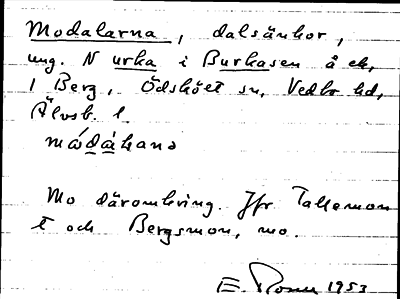 Modalarna, dalsänkor,
ung. N urka i Burkasen å ek,
1 Berg, Ödsköet sn, Vedbo hd,
Älvsb. l.
Mo däromkring. Jfr Tallemon
t och Bergsmon, mo.
E. 1953